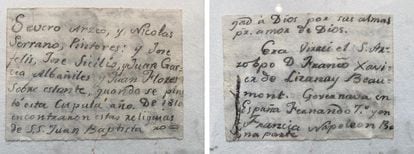 Severo Arzeo, y Nicolas
Serrano, Pintores: y Jose
felis, Jose Sicilio, y Juan Gar
cia Albañiles y Juan Flores
Sobre estante, quando se pin
tó esta Cupula año. De 1810
encontraron estas reliquias
de S.S. Juan Baptista
gad à Dios por sus almas
pr. amor de Dios.
Era Virrei el S. Ar
zobpo D. Franco Xavi
er de Lizana y Beau
mont. Governava en
España Fernando 7.º y en
Francia Napoleon Bo
na parte